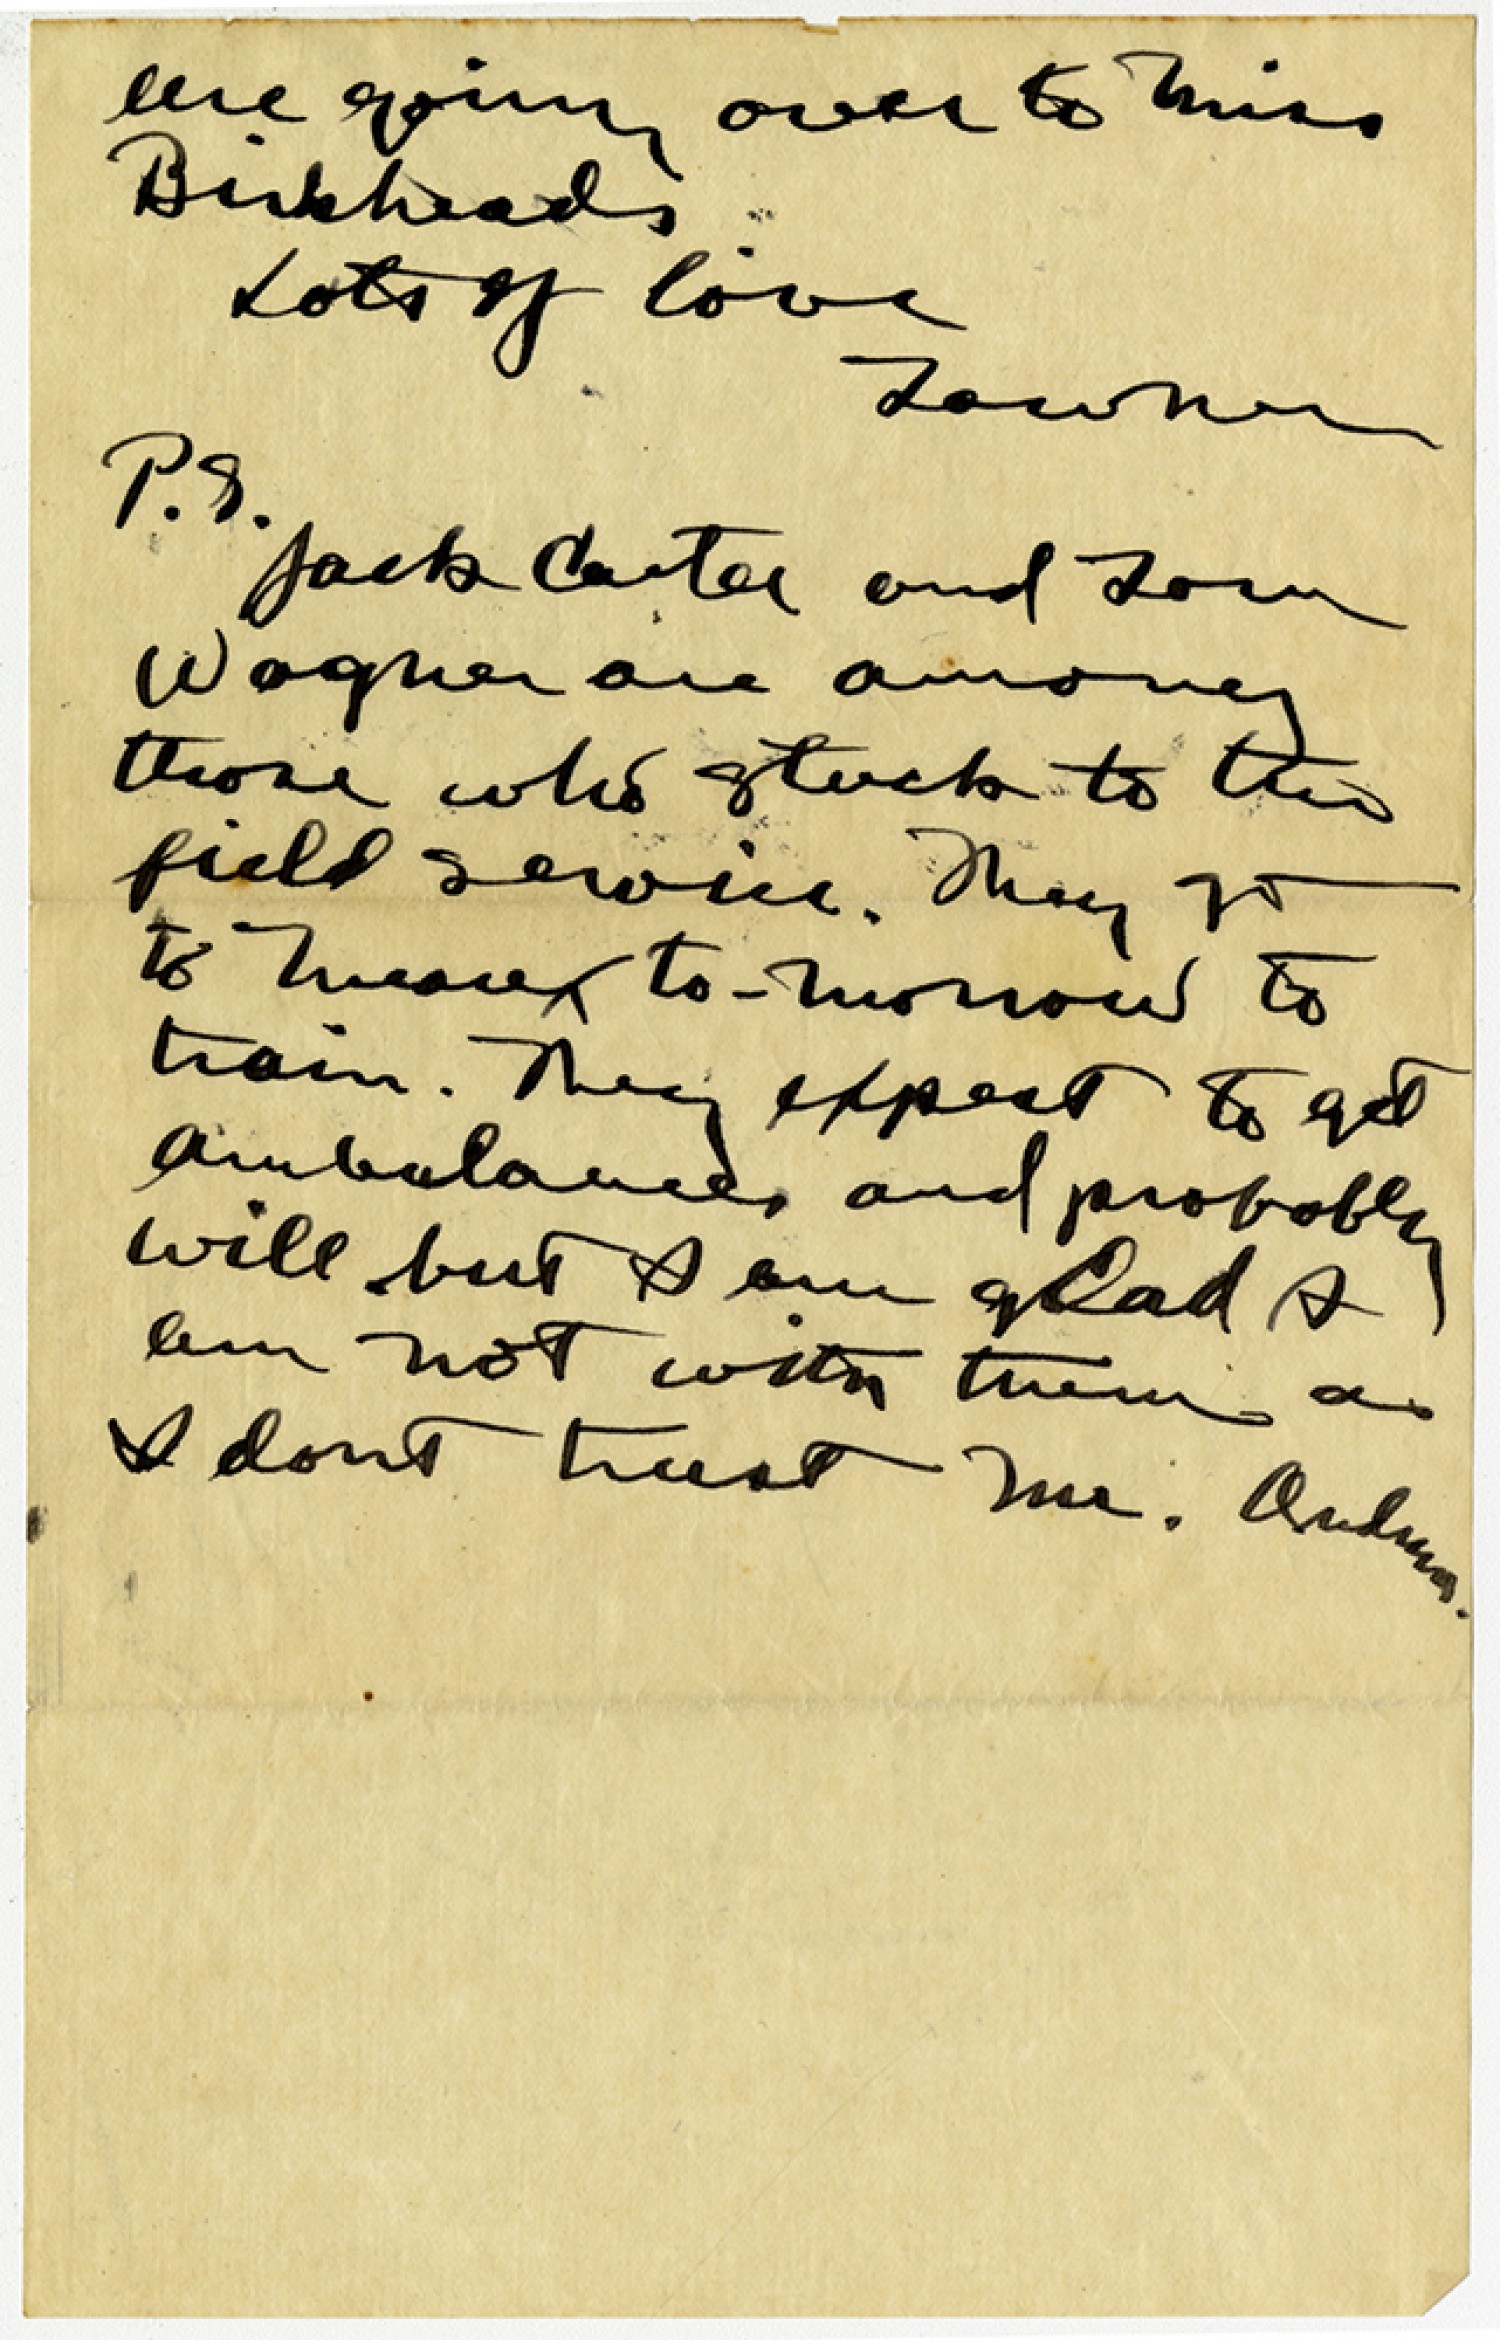 are going over to Miss
Birkheads
Lots of love
Towner
P.S.
Jack Carter and Tom
Wagner are among
those who stuck to the
field service. They go
to Meaux to-morrow to
train. They expect to get
ambulances and probably
will but I am glad I
am not with them as
I dont trust Mr. Andrew.